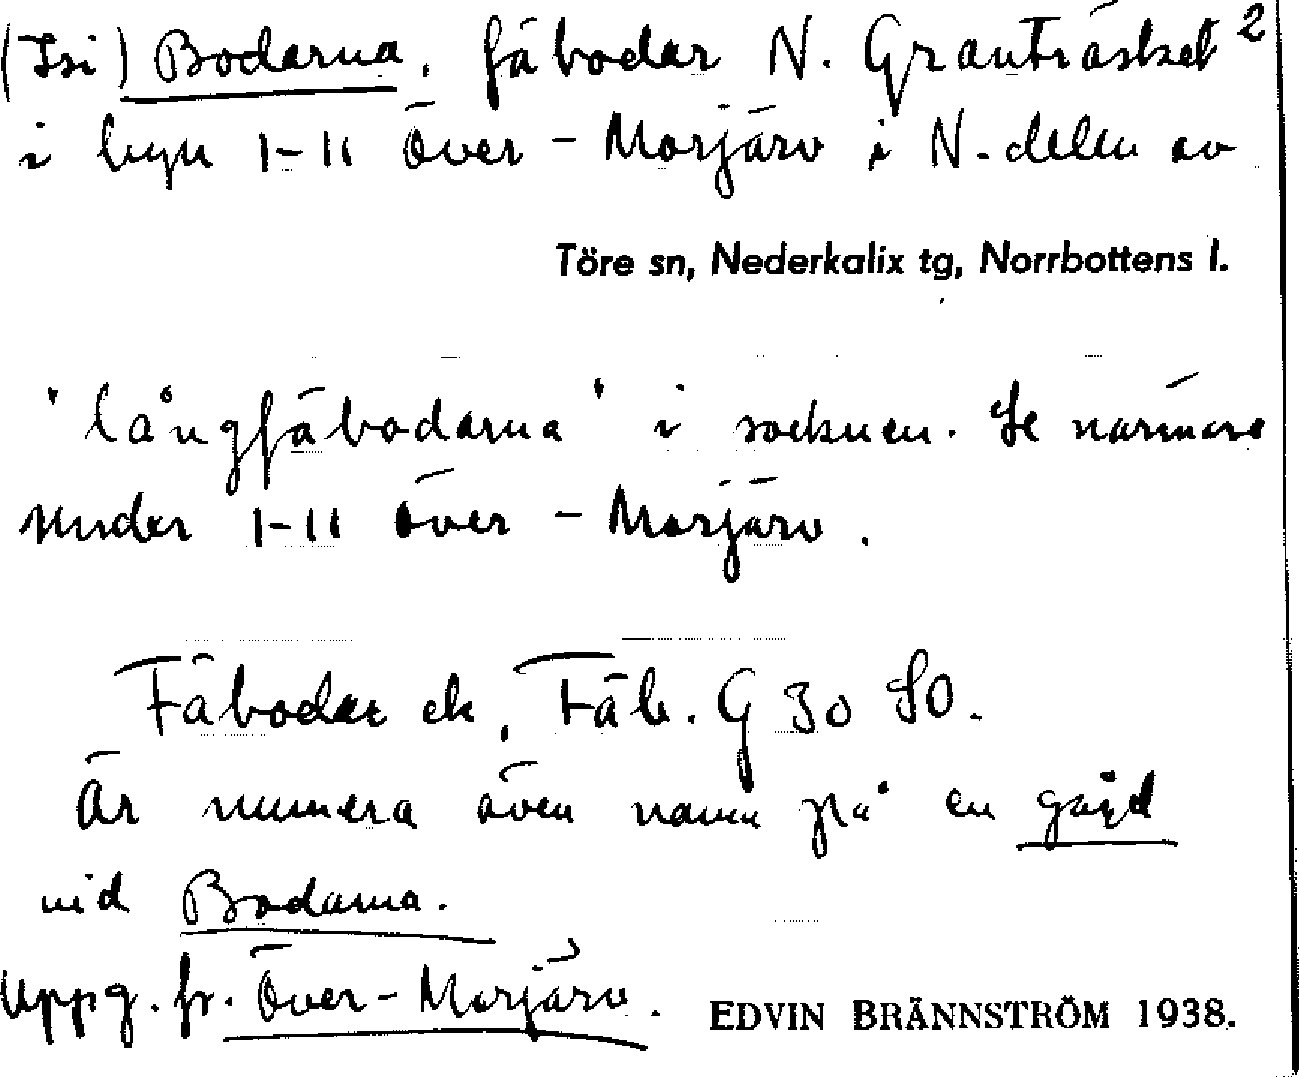 (Isi) Bodarna, fäbodar N. Granträsket 2
i byn 1-11 Över-Morjärv i N. delen av
Töre sn, Nederkalix tg, Norrbottens l.
'långfäbodarna' i socknen. Se närmare
under 1-11 Över-Morjärv.
Fäbodar ek, Fäb. G 30 SO.
Är numera även namn på en gård
vid Bodarna.
Uppg. fr. Över-Morjärv. EDVIN BRÄNNSTRÖM 1938.